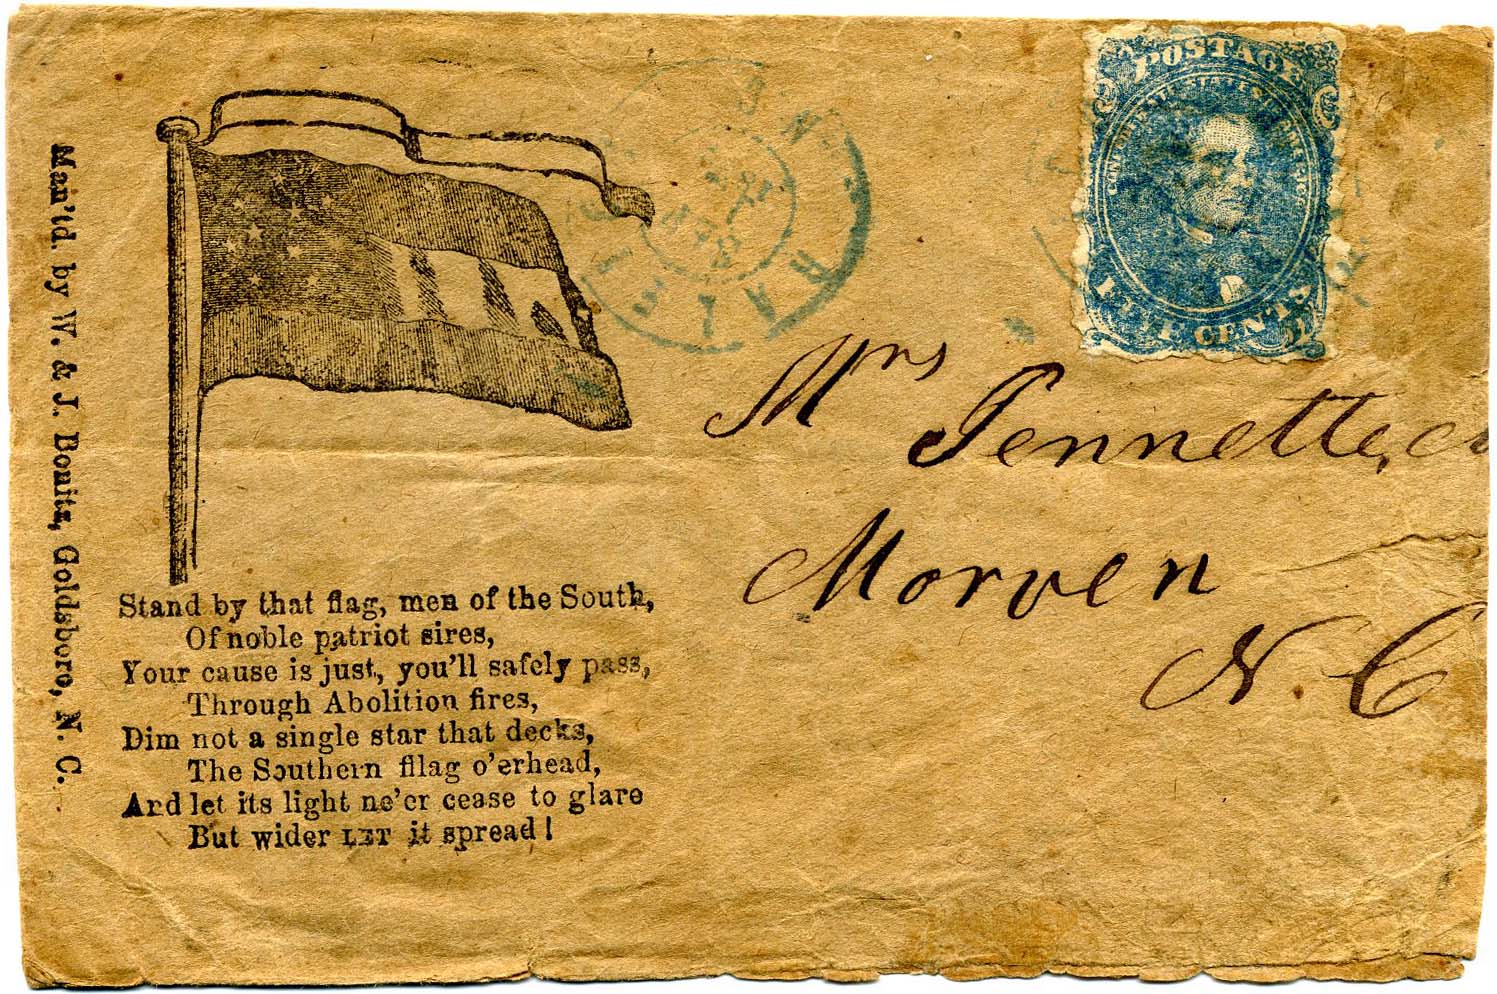 Man'td. by W. & J. Bonitz, Goldsboro, N. C.
Stand by that flag, men of the South,
Of noble patriot sires,
Your cause is just, you'll safely pass,
Through Abolition fires,
Dim not a single star that decks,
The Southern fllag o'erhead,
And let its light ne'er cease to glare
But wider LET it spread!
RALEIGH N. C
POSTAGE
FIVE CENTS
Mrs
Jennette
Morven
N. C